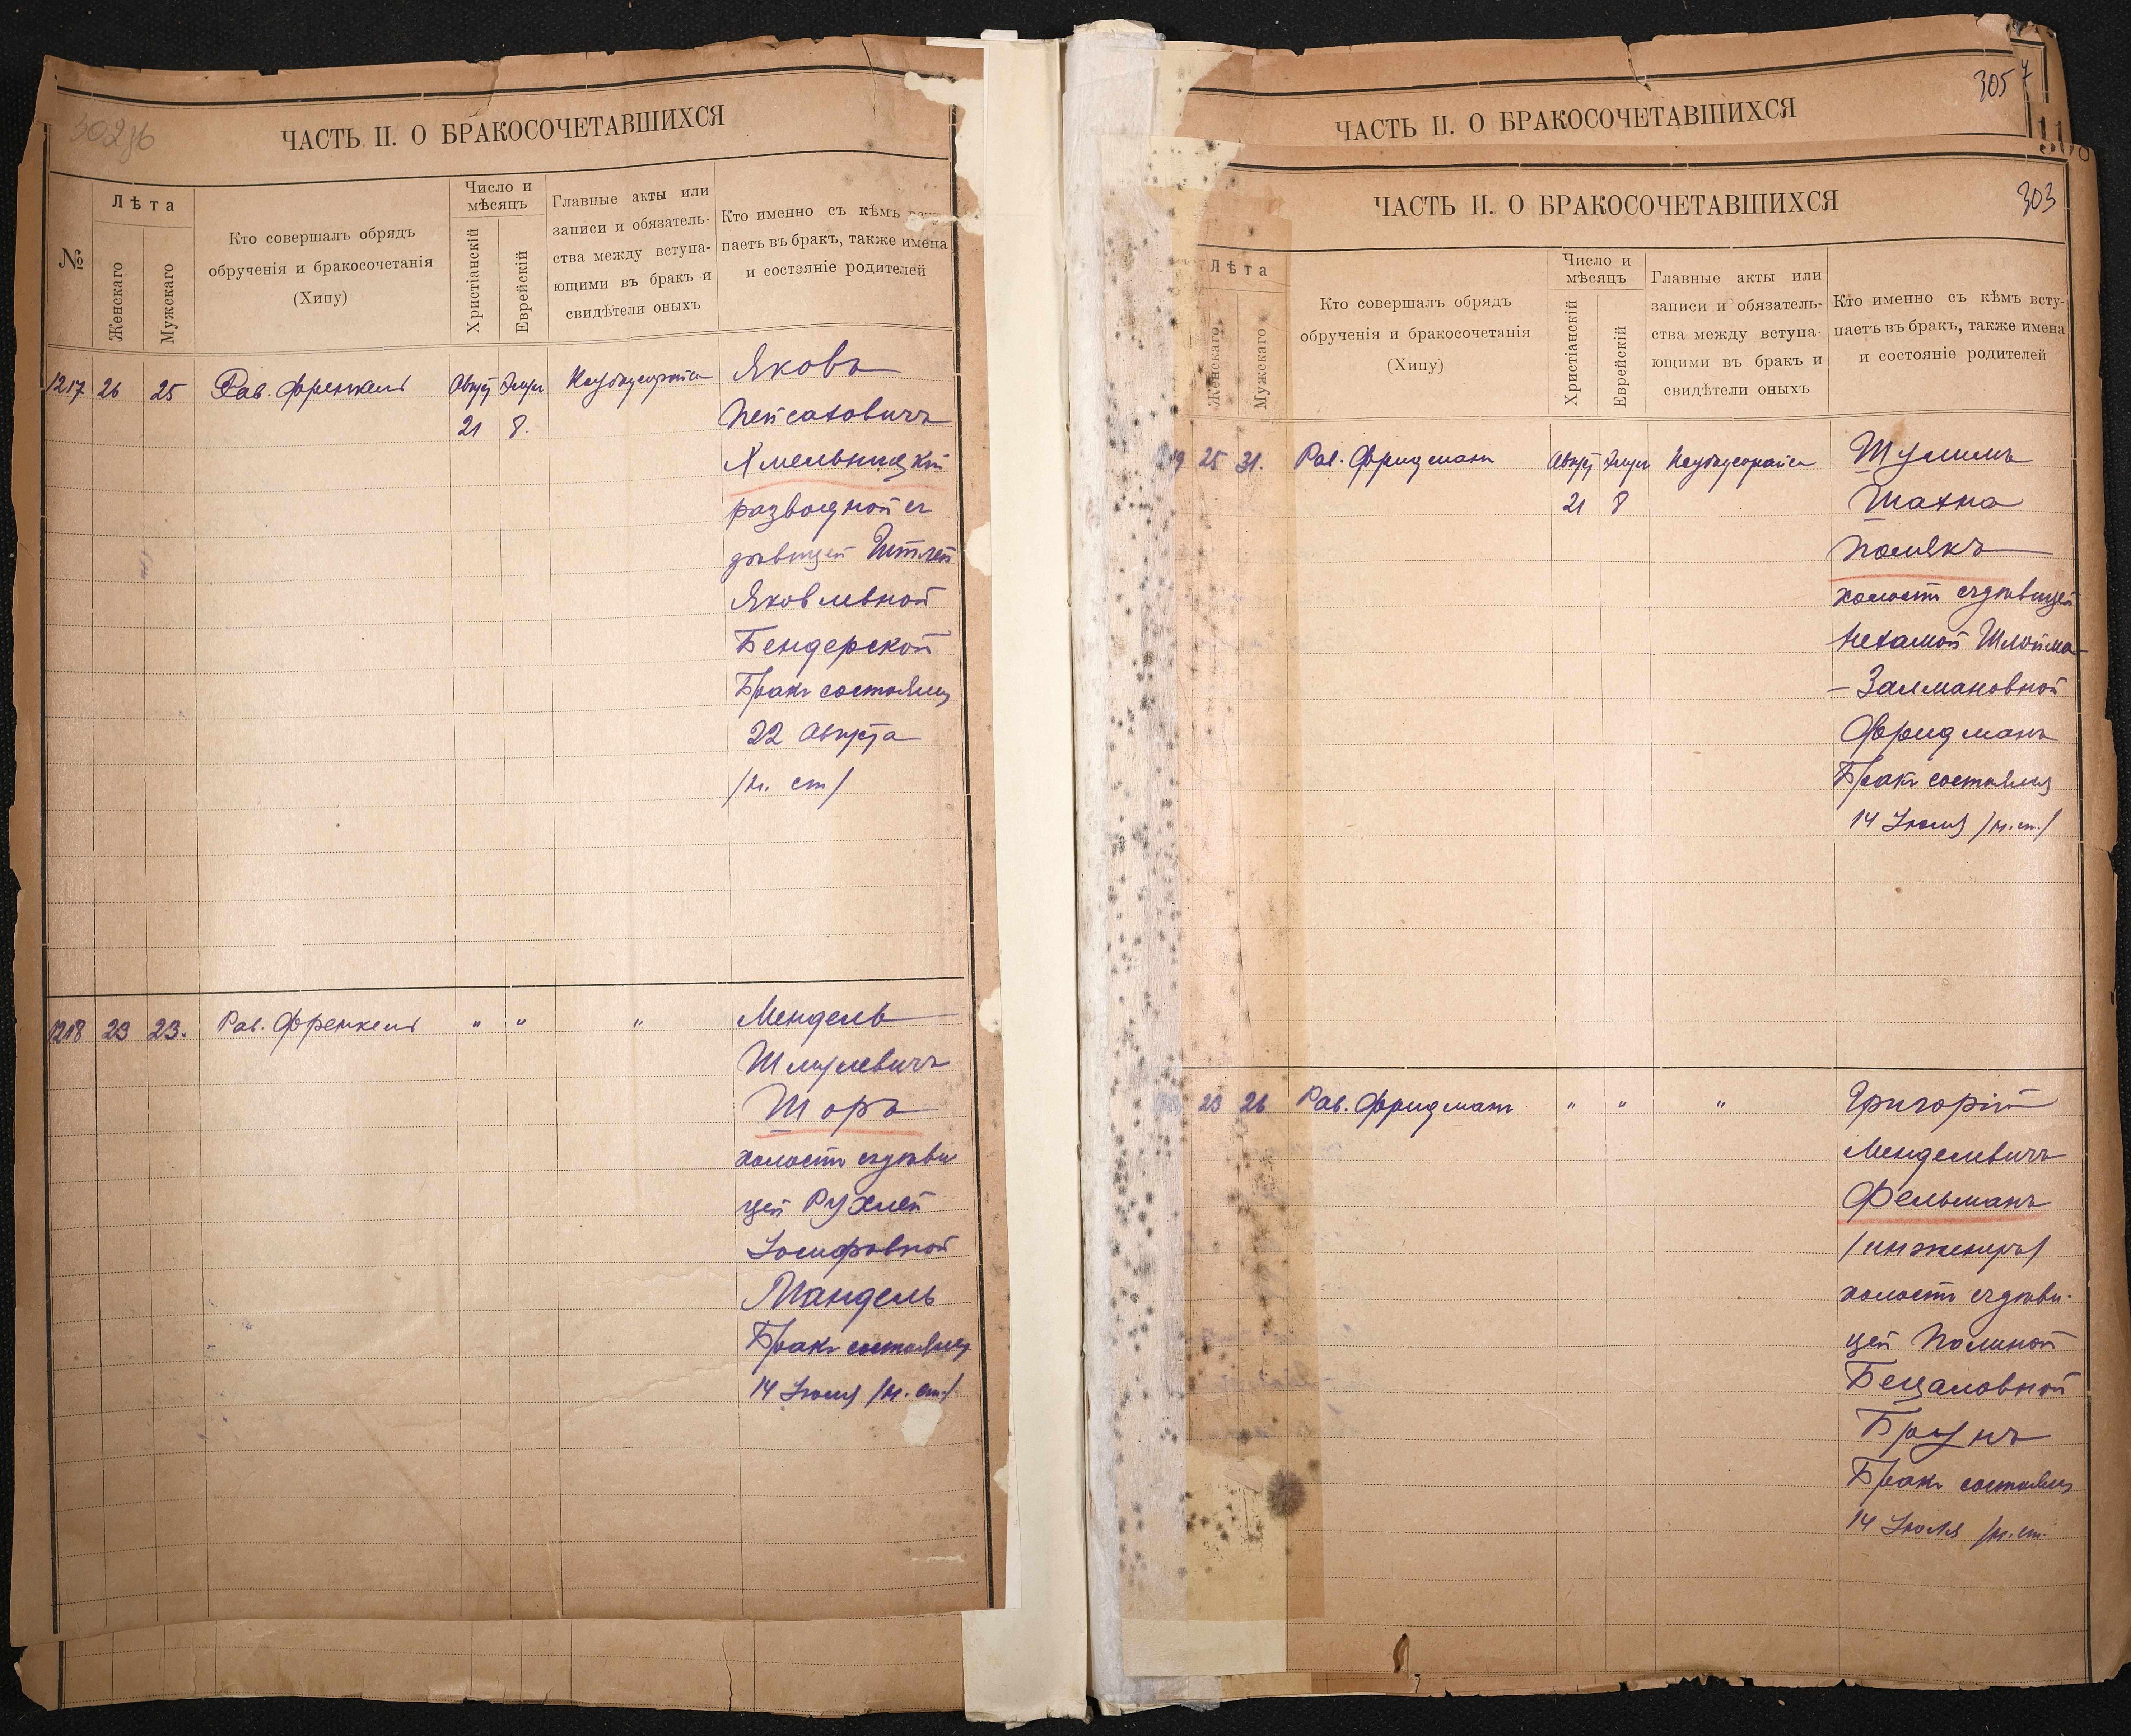 302 об
ЧАСТЬ II. О БРАКОСОЧЕТАВШИХСЯ
№
Лѣта
Женскаго
Мужскаго
Кто совершалъ обрядъ
обрученія и бракосочетанія
(Хипу)
Число и
мѣсяцъ
Христіанскій
Еврейскій
Главные акты или
записи и обязатель-
ства между вступа-
ющими въ бракъ и
свидѣтели оныхъ
Кто именно съ кѣмъ всту-
паетъ въ бракъ, также имена
и состояніе родителей
1217 26 25 Рав. Френкель Август Элул
21 8.
Яковъ
Пейсаховичъ
Хмельницкій
разводной съ
дѣвицей Этлей
Яковлевной
Бендерской
Бракъ состоялся
22 Августа
/н. ст/
1218 23 23. Рав. Френкель " " "
Мендель
Шмулевичъ
Шоръ
холостъ съ дѣви
цей Рухлей
Іосифовной
Мандель
Бракъ состоялся
14 Іюля /н. ст./
305
ЧАСТЬ II. О БРАКОСОЧЕТАВШИХСЯ
303
ЧАСТЬ II. О БРАКОСОЧЕТАВШИХСЯ
Лѣта
Женскаго
Мужскаго
Кто совершалъ обрядъ
обрученія и бракосочетанія
(Хипу)
Число и
мѣсяцъ
Христіанскій
Еврейскій
Главные акты или
записи и обязатель-
ства между вступа-
ющими въ бракъ и
свидѣтели оныхъ
Кто именно съ кѣмъ всту-
паетъ въ бракъ, также имена
и состояніе родителей
25 31. Рав. Фридманъ Август Элул
21 8
Шулимъ
Шахна
Полякъ
холостъ съ дѣвицей
Нехамой Шлойма-
- Залмановной
Фридманъ
Бракъ состоялся
14 Іюля /н. ст./
23 26 Рав. Фридманъ " " "
Григорій
Менделевичъ
Фельманъ
/инженеръ/
холостъ съ дѣви-
цей Полиной
Бецаловной
Браунъ
Бракъ состоялся
14 Іюля /н. ст.